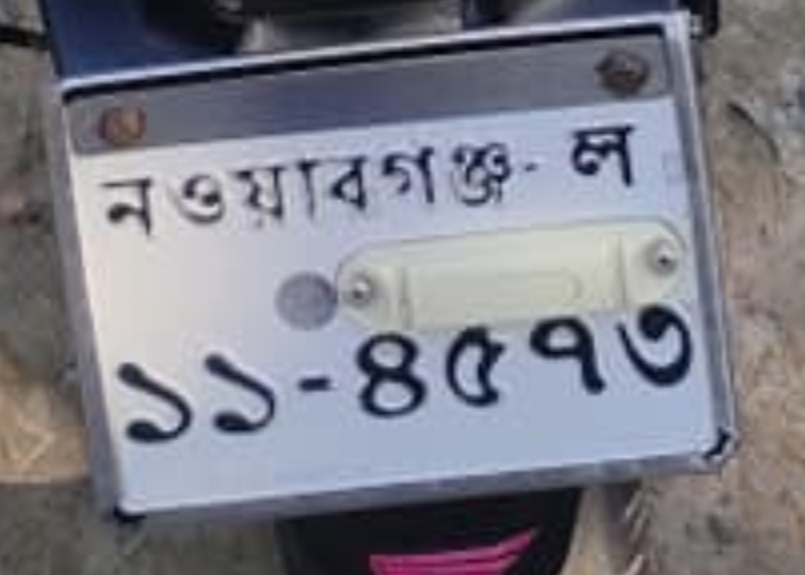 নওয়াবগঞ্জ- ল
১১-৪৫৭৩